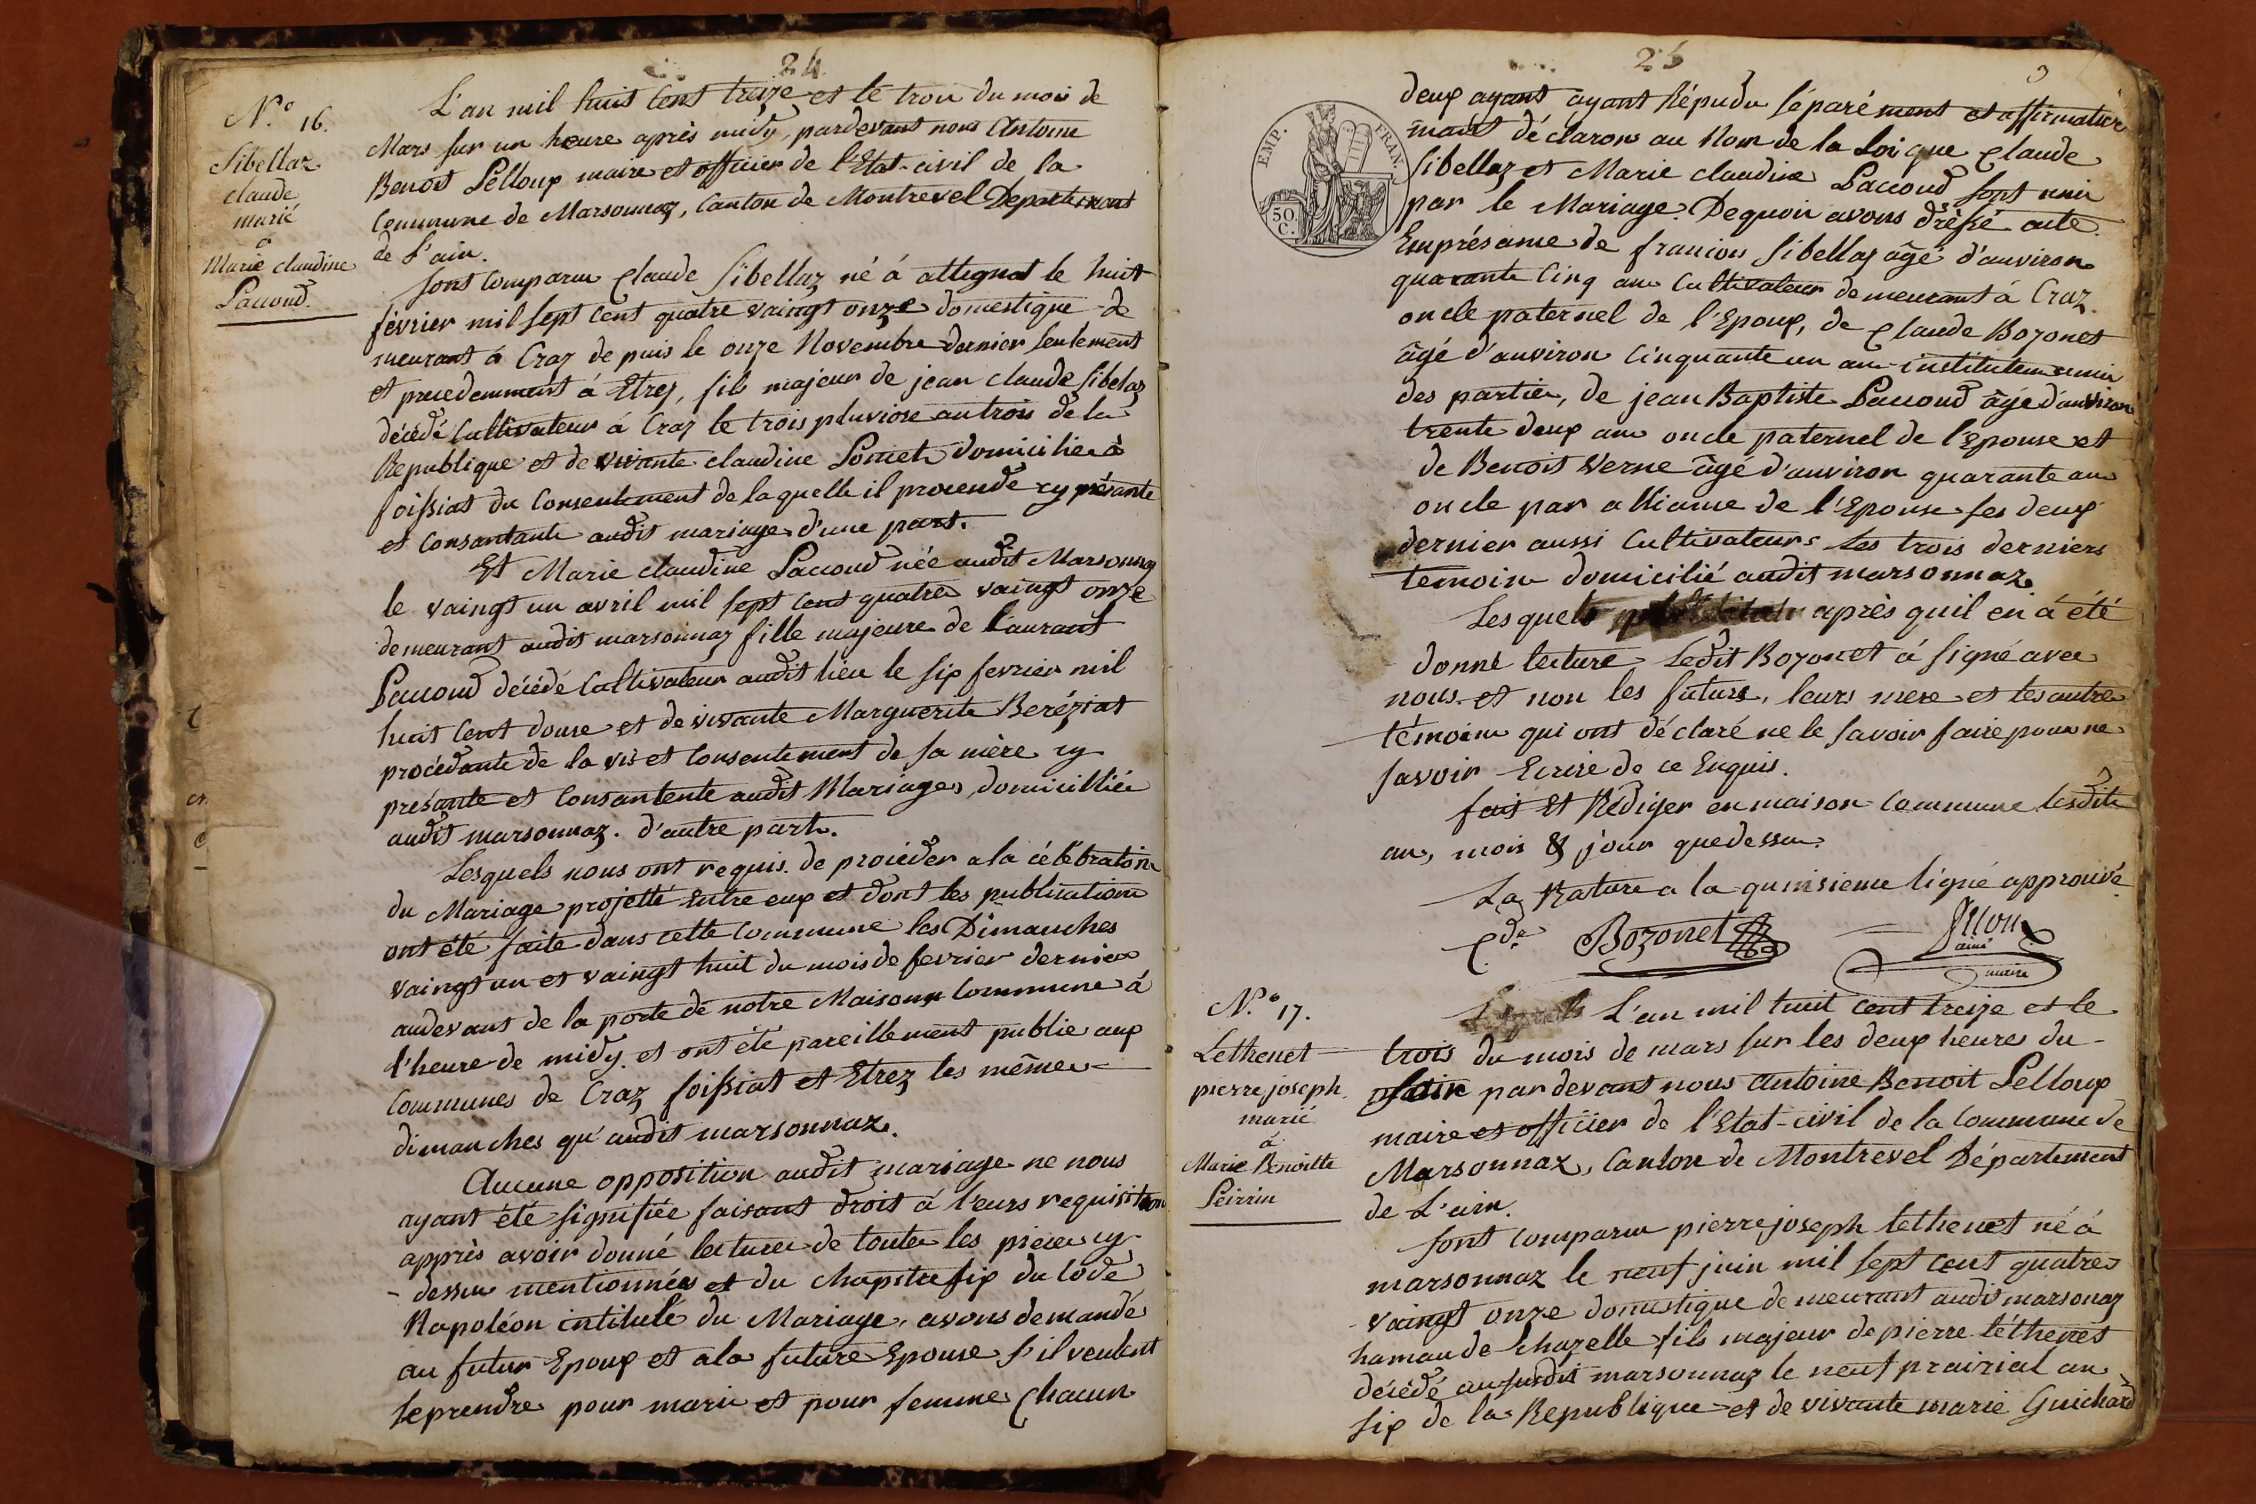 24
N.° 16.
Sibellaz
claude
marié
à
Marie claudine
Paccoud.
L'an mil huit Cent treize et le trois du mois de
Mars sur un heure après midy, pardevant nous Antoine
Benoit Pelloux maire et officier de l'Etat-civil de la
Commune de Marsonnaz, Canton de Montrevel Departement
de L'ain.
Sont comparus Claude Sibellaz né á attignat le huit
février mil sept cent quatre vaingt onze domestique de
meurant á Craz de puis le onze Novembre dernier seulement
et precedemment á Etrez, fils majeur de jean claude Sibelaz
décédé Cultivateur á Craz le trois pluviose an trois de la
Republique et de vivante claudine Poncet domiciliée à
foissiat du Consentement de laquelle il procende cy présante
et Consantante audit mariage d'une part.
Et Marie claudine Paccoud née audit Marsonnaz
le vaingt un avril mil sept cent quatre vaingt onze
demeurant audit marsonnaz fille majeure de Laurant
Paccoud décédé Cultivateur audit lieu le six fevrier mil
huit Cent douse et de vivante Marguerite Beréziat
procédante de la vis et Consentement de sa mère cy
présante et Consantente audit Mariage, domicilliée
audit marsonnaz. d'autre part.
Lesquels nous ont requis de procéder a la célébration
du Mariage projetté entre eux et dont les publications
ont été faite dans cette commune les Dimanches
vaingt un et vaingt huit du mois de fevrier dernier
audevant de la porte de notre Maison Commune á
l'heure de midy. et ont été pareillement publie aux
Communes de Craz, foissiat et Etrez les mêmes
dimanches qu'audit marsonnaz.
Aucune opposition audit mariage ne nous
ayant été signifiée faisant droit á leurs requisition
apprès avoir donné lecture de toute les pieces cy
- dessus mentionnées et du chapitre six du Code
Napoléon intitulé du Mariage, avons demandé
au futur Epoux et a la future Epouse s'il veulent
se prendre pour mari et pour femme Chacun
25
EMP. FRAN.
50
C.
deux ayant ayant Répudu séparément et affirmative
mant déclarons au Nom de la Loi que Claude
Sibellaz et Marie claudine Paccoud sont unis
par le Mariage. De quoi avons dréssé acte
Emprésance de francois Sibellaz âgé d'auviron
quarante Cinq ans Cultivateur demeurant á Craz
oncle paternel de l'Epoux, de Claude Bozonet
âgé d'auviron Cinquante un ans instituteur amis
des parties, de jean Baptiste Paccoud âgé d'auviron
trente deux ans oncle paternel de l'Epouse et
de Benoit Verne âgé d'auviron quarante ans
oncle par alliance de l'Epouse ses deux
dernier aussi Cultivateurs Les trois derniers
temoins domicilié audit marsonnaz
Les quels après quil en á été
donné lecture, Ledit Bozonet á signé avec
nous et non les futurs, leurs mere et les autre
témoins qui ont déclaré ne le savoir faire pour ne
savoir Ecrire de ce Enquis.
fait Et Rédiger en maison Commune lesdits
an, mois & jour que dessus.
La Rature a la quinsieme ligne approuvé
C.de Bozonet
ainé
maire
N.° 17.
Lethenet
pierre joseph
marié
à
Marie Benoitte
Peirrin
L'an mil huit Cent treize et le
trois du mois de mars sur les deux heures du
soir par devant nous antoine Benoit Pelloux
maire et officier de l'Etat-civil de la Commune de
Marsonnaz, Canton de Montrevel Département
de L'ain.
Sont comparus pierre joseph lethenet né á
marsonnaz le neuf juin mil sept cent quatre
vaingt onze domestique demeurant audit marsonaz
hamau de Chazelle fils majeur de pierre léthenet
décédé au susdit marsonnaz le neuf prairial an
six de la Republique et de vivante marie Guichard